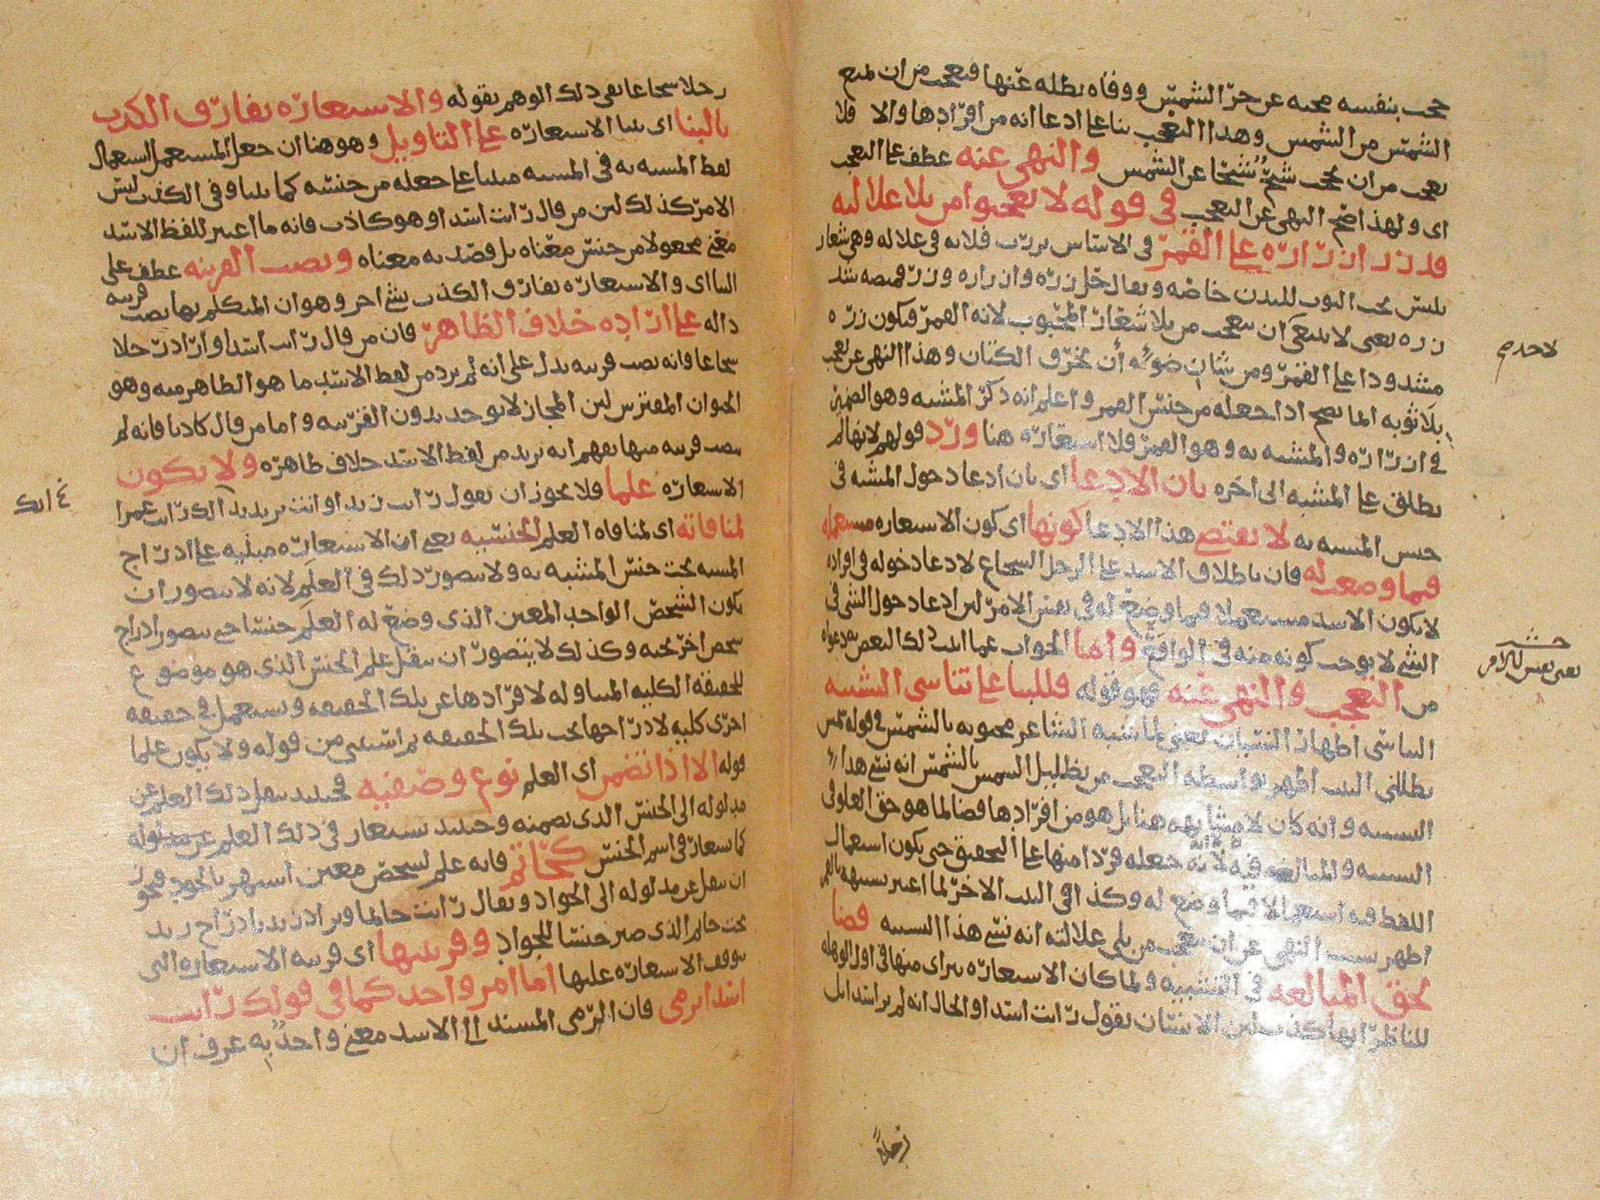 حجب بنفسه محبه عن حرّ الشمس ووقاه بظله عنها فتعجب من ان تمنع
الشمس من الشمس وهذا التعجب بناء على ادعا انه من افرادها والا فلا
تعجب من ان يحجب شبح شبحا عن الشمس والنهى عنه عطف على التعجب
اى ولهذا صح النهى عن التعجب فى قوله لا تعجبوا من بلا غلالته
قد زر ازراره على القمر فى الاساس بردت فلانه فى غلاله وهى شعار
يلبس تحت الثوب للبدن خاصه ويقال حل زره وازراره وزر قميصه شد
زره يعنى لا ينبغى ان يتعجب من بلا شعار المحبوب لانه القمر فيكون زره
مشدودا على القمر ومن شان ضوئه أن يخرق الكتان وهذا النهى عن تعجب
بلا ثوبه انما يصح اذا جعله من جنس القمر واعلم انه ذكر المشبه وهو الضمير
فى ازراره والمشبه به وهو القمر فلا استعاره هنا ورد قولهم لانها لم
يطلق على المشبه الى اخره بان الادعا اى بان ادعا دخول المشبه فى
جنس المشبه به لا يقتضى هذا الادعا كونها اى كون الاستعاره مستعمله
فيما وضعت له فان باطلاق الاسد على الرجل الشجاع لادعا دخوله فى افراده
لا يكون الاسد مستعملا فيما وضع له فى نفس الامر لان ادعا دخول الشى فى
الشى لا يوجب كونه منه فى الواقع واما الجواب عما اثبت ذلك البعض به دعواه
من التعجب والنهى عنه فهو قوله فللبنا على تناسى التشبيه
التناسى اظهار النسيان يعنى لما شبه الشاعر محبوبه بالشمس فى قوله شمس
تظللنى البيت اظهر بواسطه التعجب من تظليل الشمس بالشمس انه نسى هذا
التشبيه وانه كان لا مشابهه هنا بل هو من افرادها قضا لما هو حق العلو فى
التشبيه والمبالغه فيه لانه جعله فردا منها على التحقيق حتى يكون استعمال
اللفظ فيه استعمالا فيما وضع له وكذا فى البيت الاخر لما اعتبر تشبيهه بالقمر
اظهر بسبب النهى عن ان يتعجب من بلى غلالته انه نسى هذا التشبيه قضا
لحق المبالغه فى التشبيه ولما كان الاستعاره يتراى منها فى اول الوهله
للناظر انها كذب لان الانسان يقول رايت اسدا والحال انه لم ير اسدا بل
رجلا
لا حد م
يعنى نفس الامر
رجلا شجاعا نفى ذلك الوهم بقوله والاستعاره تفارق الكذب
بالبنا اى بنا الاستعاره على التاويل وهو هنا ان جعل المستعمل استعمال
لفظ المشبه به فى المشبه مبنيا على جعله من جنسه كما بينا وفى الكذب ليس
الامر كذلك لان من قال رايت اسدا وهو كاذب فانه ما اعتبر للفظ الاسد
معنى مجعولا من جنس معناه بل قصد به معناه ونصب القرينه عطف على
البنا اى والاستعاره تفارق الكذب بشى اخر وهو ان المتكلم بها نصب قرينه
داله على اراده خلاف الظاهر فان من قال رايت اسدا واراد رجلا
شجاعا فانه نصب قرينه تدل على انه لم يرد من لفظ الاسد ما هو الظاهر منه وهو
الحيوان المفترس لان المجاز لا يوجد بدون القرينه واما من قال كاذبا فانه لم
ينصب قرينه منها يفهم انه يريد من لفظ الاسد خلاف ظاهره ولا يكون
الاستعاره علما فلا يجوز ان تقول رايت زيدا وانت تريد بذلك رايت عمرا
لمنافاته اى لمنافاه العلم الجنسيه يعنى ان الاستعاره مبنيه على ادراج
المشبه تحت جنس المشبه به ولا يتصور ذلك فى العلم لانه لا يتصور ان
يكون الشخص الواحد المعين الذى وضع له العلم جنسا حتى يتصور ادراج
شخص اخر تحته وكذلك لا يتصور ان ينقل علم الجنس الذى هو موضوع
للحقيقه الكليه المتناوله لافرادها عن تلك الحقيقه ويستعمل فى حقيقه
اخرى كليه لادراجها تحت تلك الحقيقه ثم استثنى من قوله ولا يكون علما
قوله الا اذا تضمن اى العلم نوع وصفيه فحينئذ ينقل ذلك العلم عن
مدلوله الى الجنس الذى تضمنه وحينئذ يستعار فى ذلك العلم عن مدلوله
كما يستعار فى اسم الجنس كحاتم فانه علم لشخص معين اشتهر بالجود فيجوز
ان ينقل عن مدلوله الى الجواد ويقال رايت حاتما ويراد زيد بادراج زيد
تحت حاتم الذى صير جنسا للجواد وقرينتها اى قرينه الاستعاره التى
توقف الاستعاره عليها اما امر واحد كما فى قولك رايت
اسدا يرمى فان الرمى المسند الى الاسد معنى واحد به عرف ان